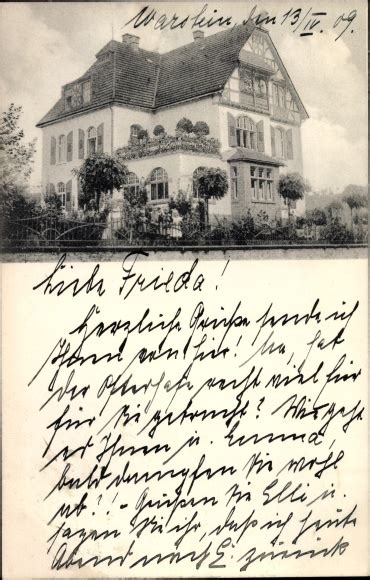 Warstein, den 13/IV. 09.
Liebe Frieda!
Herzliche Grüße sende ich
Ihnen von hier! Na, hat
der Osterhase recht viel
für Sie gebracht? Wie geht
es Ihnen u. Emma,
bald dampfen Sie wohl
ab?! - Grüßen Sie Elli u.
sagen Sie ihr, daß ich heute
Abend nach E. zurück